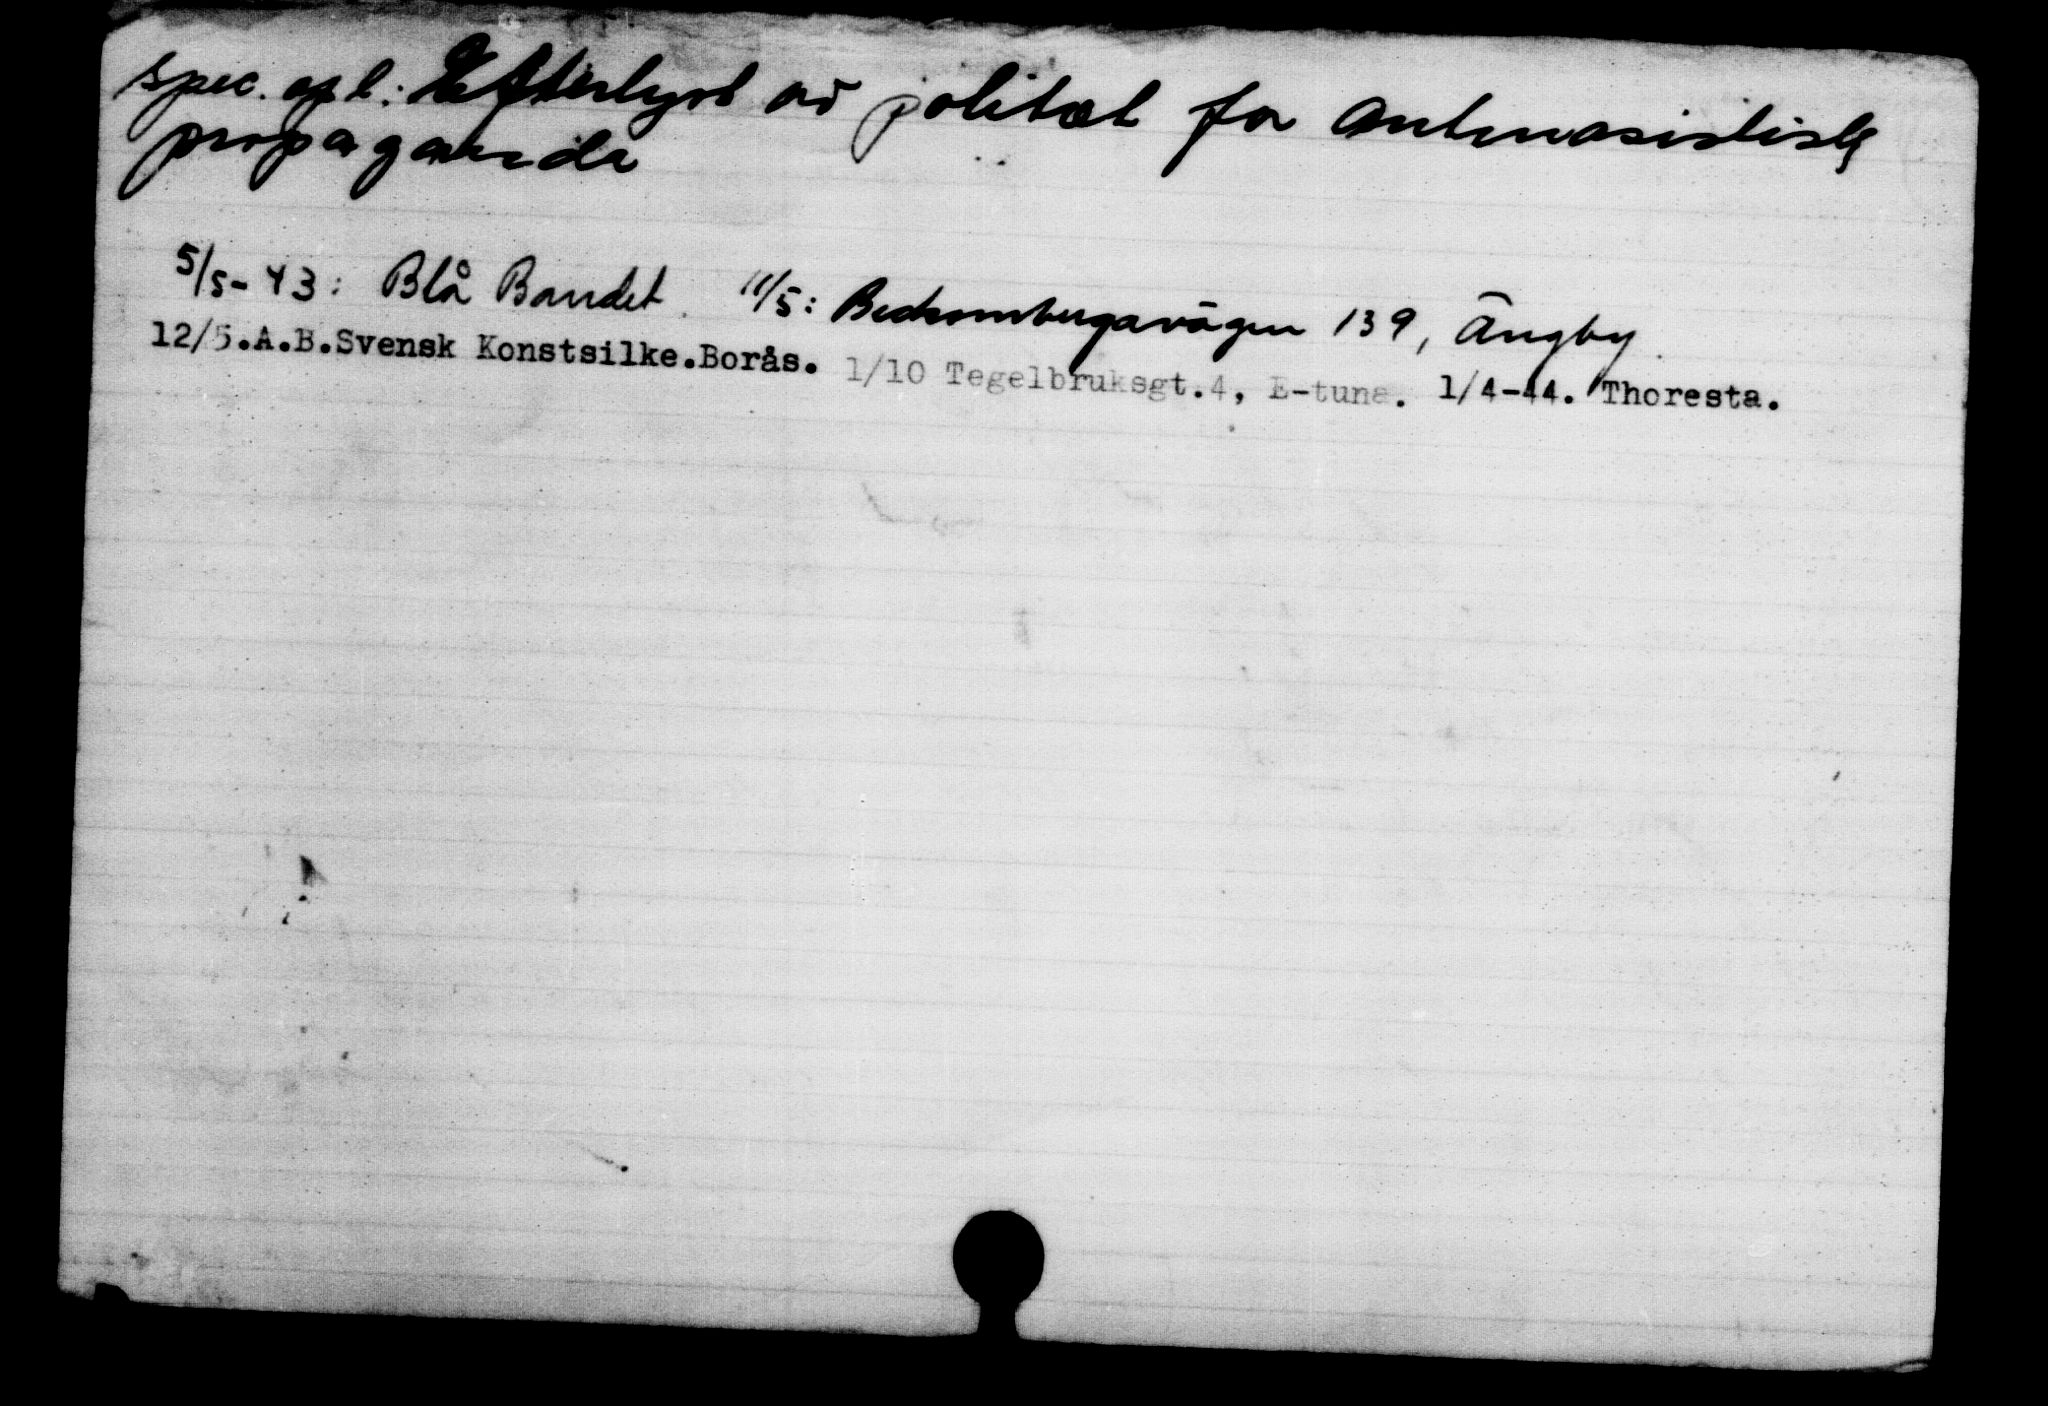 spec. opl: Efterlyst av politiet for antinasistisk
propaganda
5/5-43: Blå Bandet. 11/5: Beckombergavägen 139, Ängby.
12/5.A.B.Svensk Konstsilke.Borås. 1/10 Tegelbruksgt.4, E-tuna. 1/4-44. Thoresta.